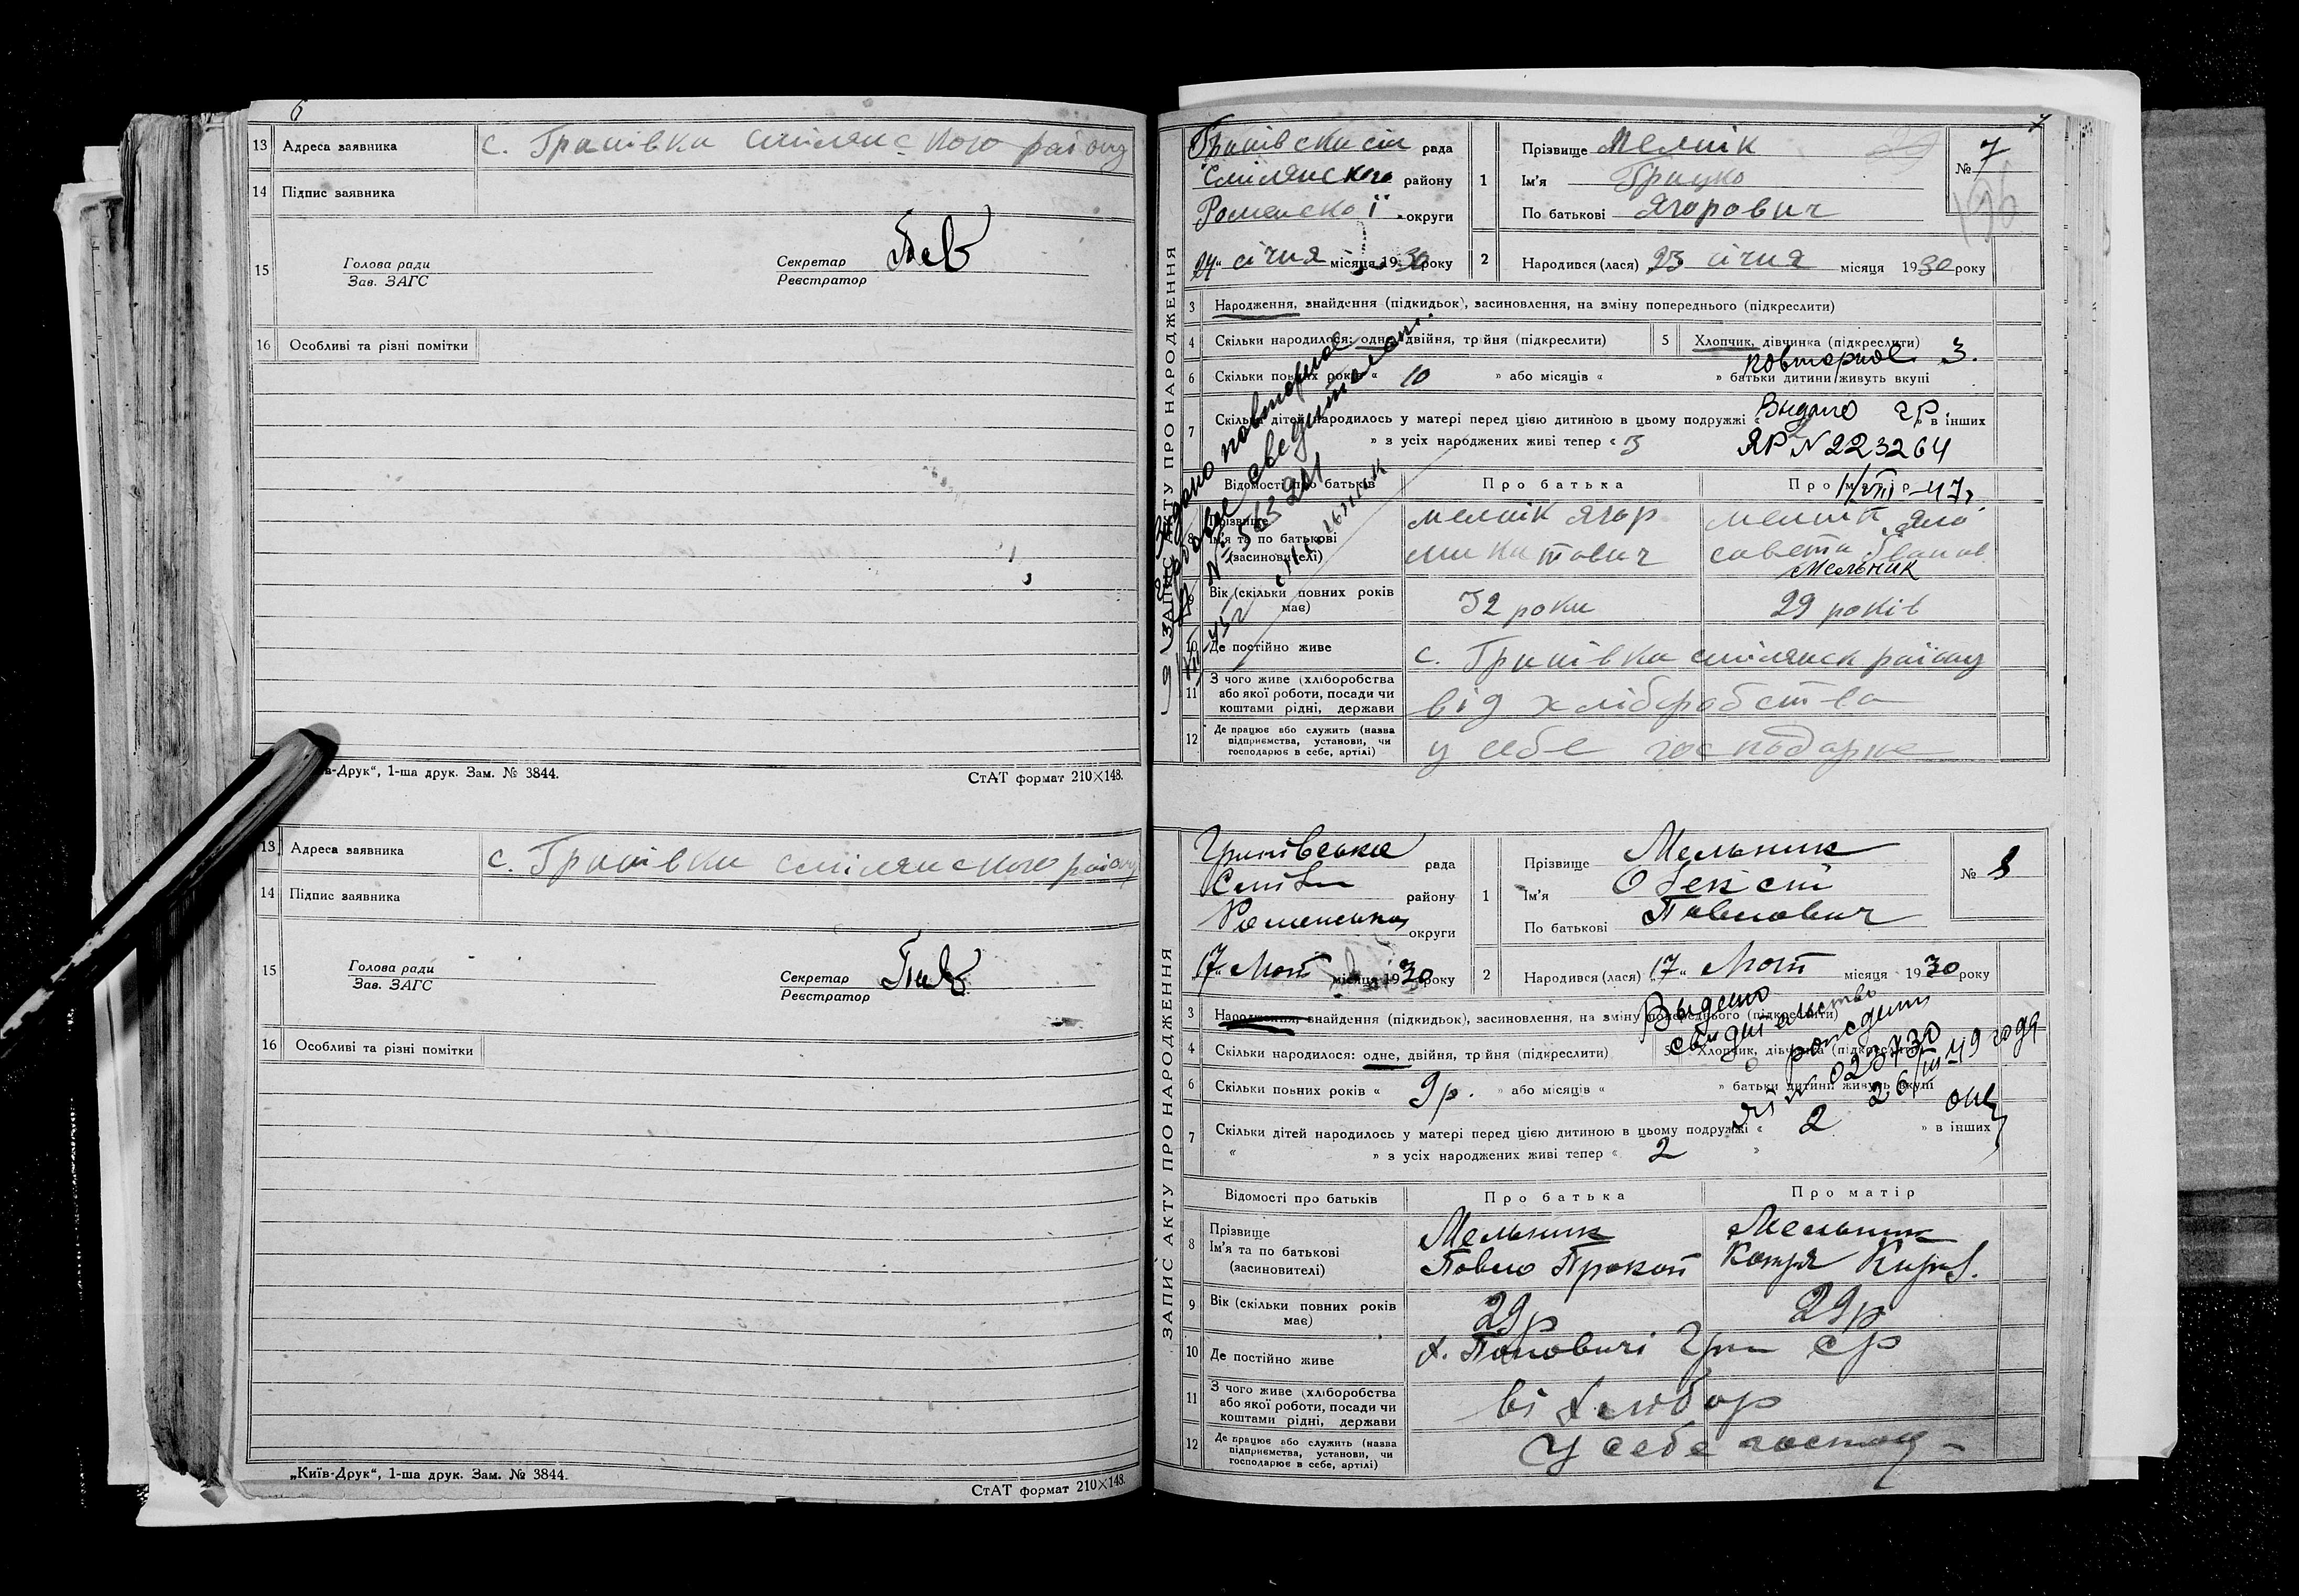 6
13 Адреса заявника с. Грипівка смілянського району
14 Підпис заявника
15 Голова ради
Зав. ЗАГС
Секретар
Реєстратор
16 Особливі та різні помітки
„Київ-Друк“, 1-ша друк. Зам. № 3844.
СтАТ формат 210×148.
13 Адреса заявника с. Грипівка смілянського району
14 Підпис заявника
15 Голова ради
Зав. ЗАГС
Секретар
Реєстратор
16 Особливі та різні помітки
„Київ-Друк“, 1-ша друк. Зам. № 3844.
СтАТ формат 210×148.
7
ЗАПИС АКТУ ПРО НАРОДЖЕННЯ
рада
Смілянского району
Роменскої округи
24 січня місяця 1930 року
1 Прізвище Мелнік
Ім'я Грицко
По батькові Ягорович
№ 7
196
2 Народився (лася) 23 січня місяця 1930 року
3 Народження, знайдення (підкидьок), засиновлення, на зміну попереднього (підкреслити)
4 Скільки народилося: одне, двійня, трійня (підкреслити)
5 Хлопчик, дівчинка (підкреслити) 3.
повторное
6 Скільки повних років « 10 » або місяців « » батьки дитини живуть вкупі
7 Скільки дітей народилось у матері перед цією дитиною в цьому подружжі « » в інших
Выдано
» з усіх народжених живі тепер « 3
ЯР № 223264
Відомості про батьків Про батька Про матір
8 Прізвище
Ім'я та по батькові
(засиновителі)
Мелнік Ягор
Микитович
Мелнік
Мельник
9 Вік (скільки повних років має) 32 роки 29 років
10 Де постійно живе с. Грипівка смілянск району
11 З чого живе (хліборобства
або якої роботи, посади чи
коштами рідні, держави
від хліборобства
12 Де працює або служить (назва
підприємства, установи, чи
господарює в себе, артілі)
у себе господарке
Мельник
ЗАПИС АКТУ ПРО НАРОДЖЕННЯ
Грипівська рада
району
Роменська округи
17 Лют місяця 1930 року
1 Прізвище Мельник
Ім'я Олексій
По батькові Павлович
№ 8
2 Народився (лася) 17 Лют місяця 1930 року
3 Народження, знайдення (підкидьок), засиновлення, на зміну попереднього (підкреслити)
Выдано
свидительство
о рождении
4 Скільки народилося: одне, двійня, трійня (підкреслити)
5 Хлопчик, дівчинка (підкреслити)
№ 023730
26/III 49 года
6 Скільки повних років « 9 р. » або місяців « » батьки дитини живуть вкупі
7 Скільки дітей народилось у матері перед цією дитиною в цьому подружжі « 2 » в інших
« » з усіх народжених живі тепер « 2 »
Відомості про батьків Про батька Про матір
8 Прізвище
Ім'я та по батькові
(засиновителі)
Мельник
Павло Прокоп
Мельник
Катря Кирил.
9 Вік (скільки повних років має) 29 р 29 р
10 Де постійно живе х. Поповичі Грип с/р
11 З чого живе (хліборобства
або якої роботи, посади чи
коштами рідні, держави
ві хлібор
12 Де працює або служить (назва
підприємства, установи, чи
господарює в себе, артілі)
у себе господ